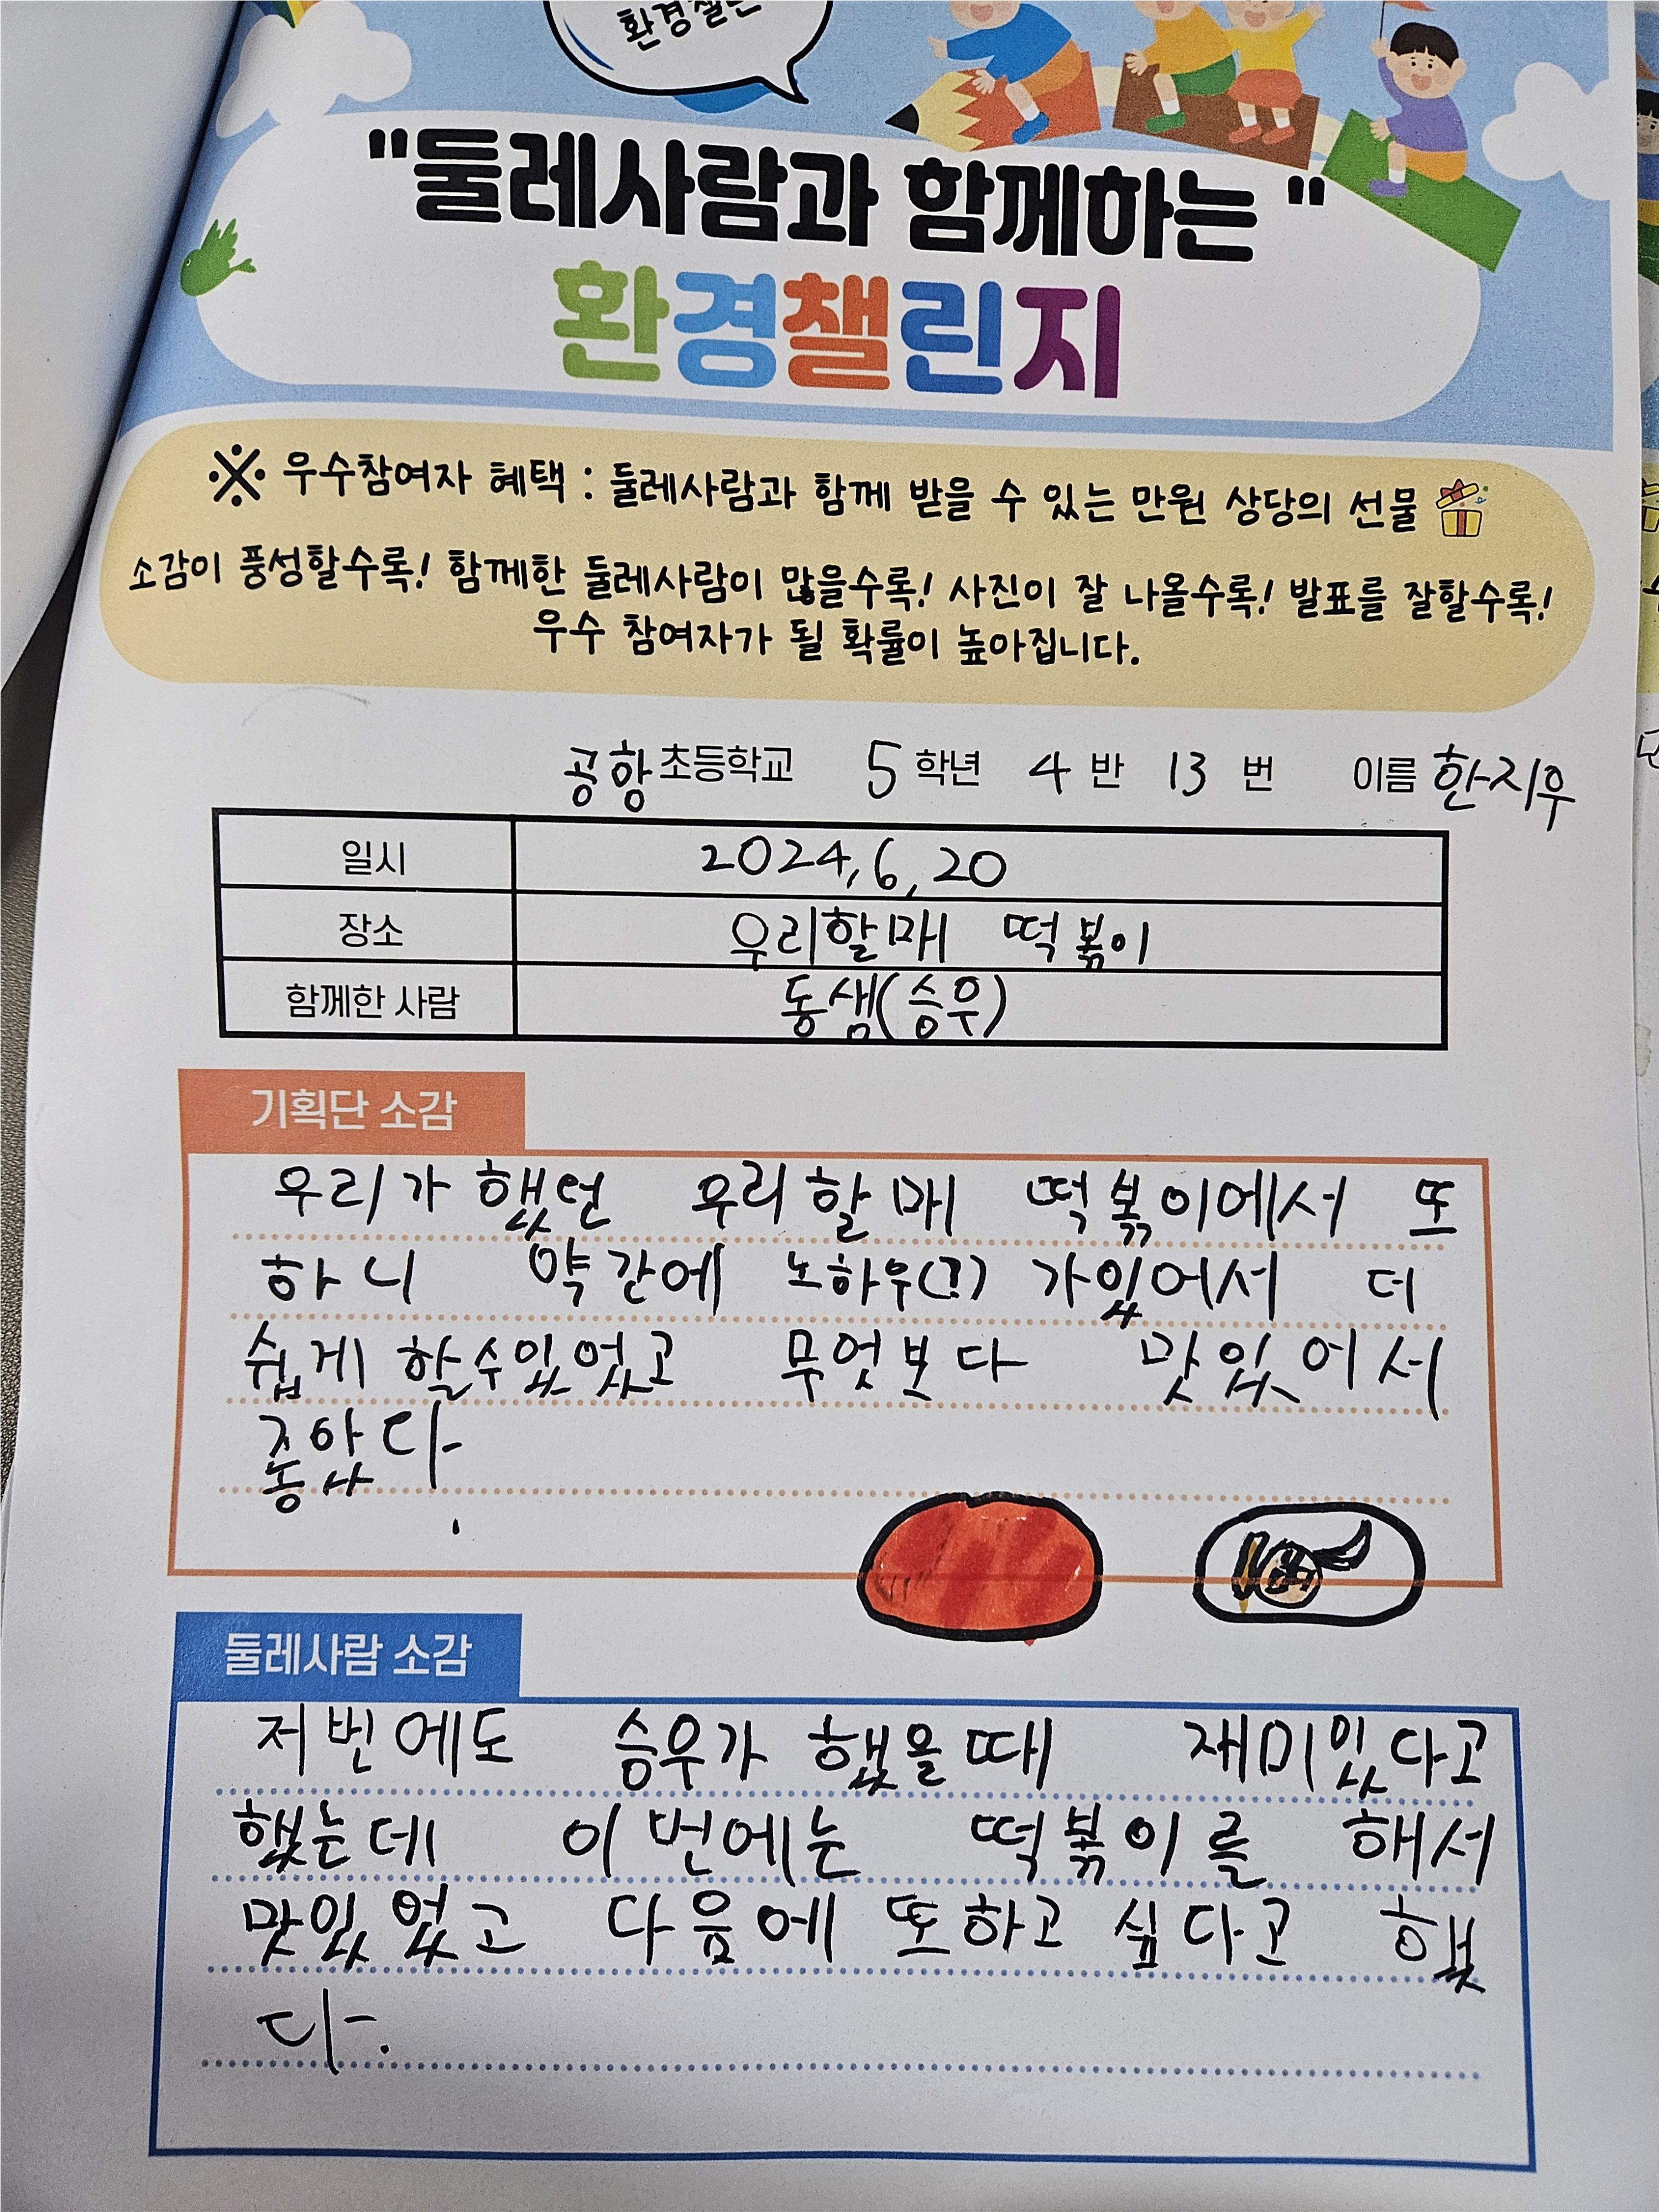 환경챌린
"둘레사람과 함께하는 "
환경챌린지
※ 우수참여자 혜택 : 둘레사람과 함께 받을 수 있는 만원 상당의 선물
소감이 풍성할수록! 함께한 둘레사람이 많을수록! 사진이 잘 나올수록! 발표를 잘할수록!
우수 참여자가 될 확률이 높아집니다.
공항 초등학교 5 학년 4 반 13 번 이름 한지우
일시 2024,6,20
장소 우리할매 떡볶이
함께한 사람 동생(승우)
기획단 소감
우리가 했던 우리할매 떡볶이에서 또
하니 약간에 노하우(?) 가있어서 더
쉽게 할수있었고 무엇보다 맛있어서
좋았다.
둘레사람 소감
저번에도 승우가 했을때 재미있다고
했는데 이번에는 떡볶이를 해서
맛있었고 다음에 또하고 싶다고 했
다.